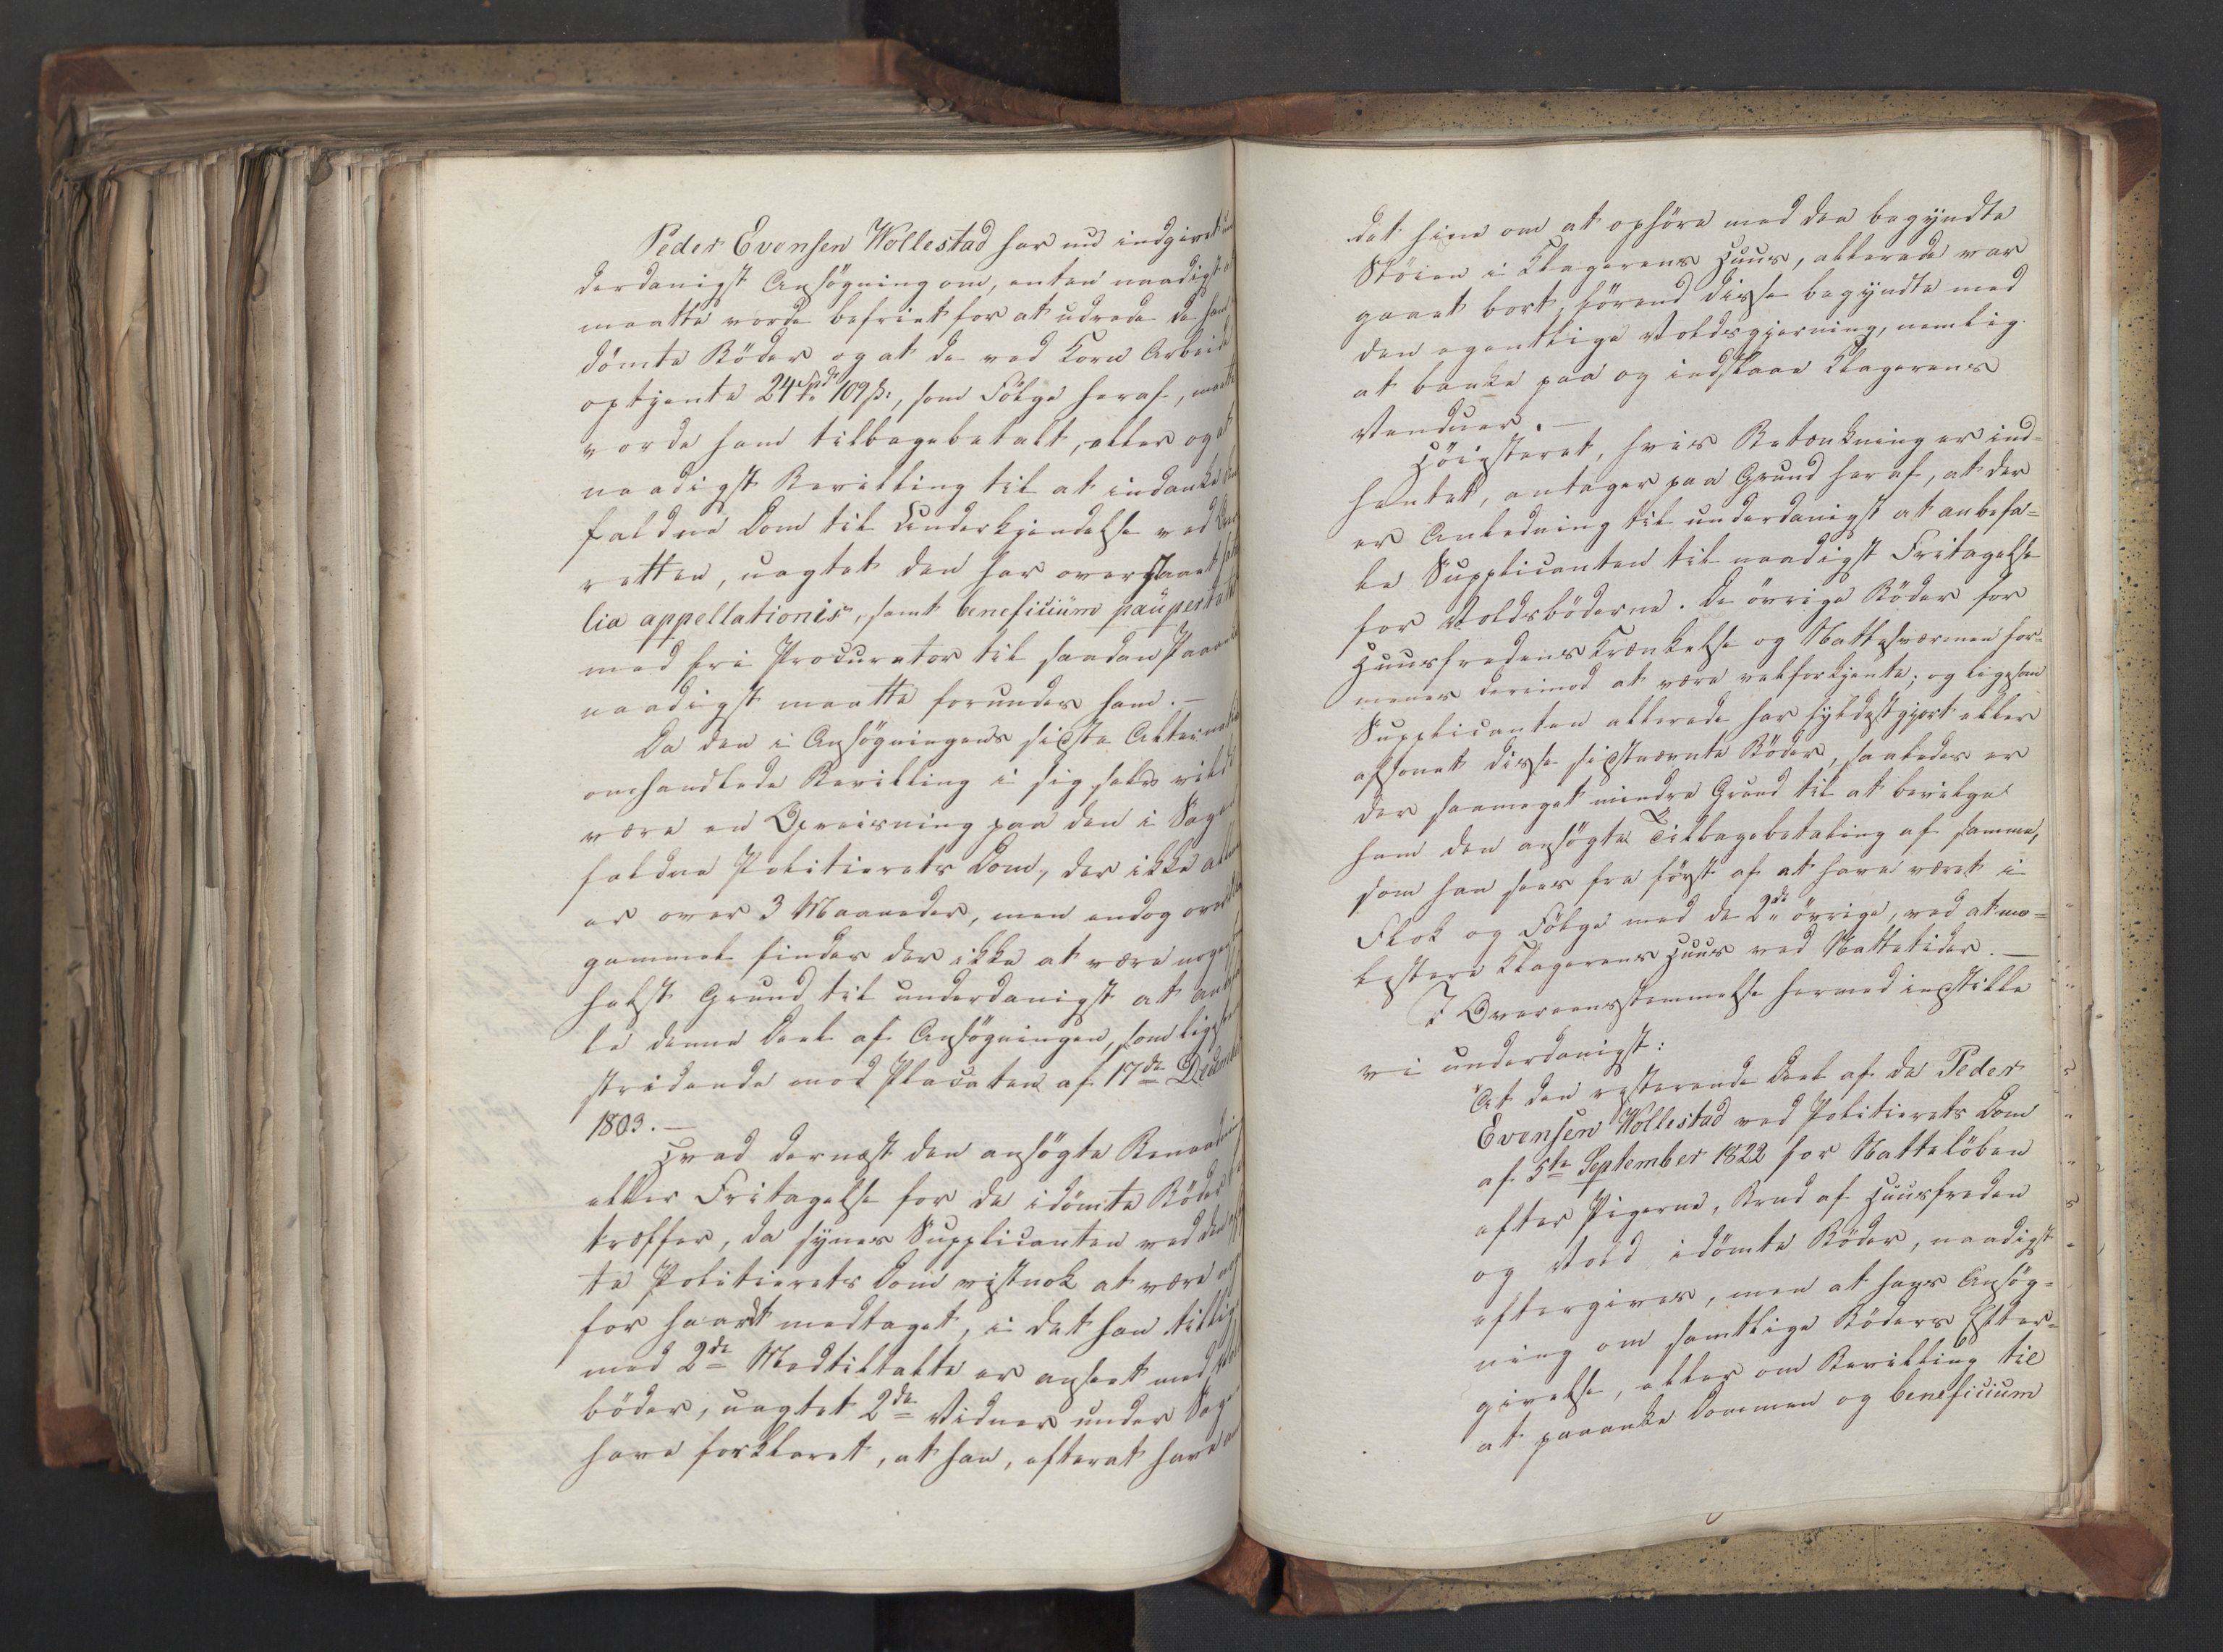 Peder Evensen Wollestad har nu indgivet un
derdanigst Ansøgning om, enten naadigst at
maatte vorde befriet for at udrede de ham
dömte Böder og at de ved Korn Arbeide
optjente 24 Spd 109 ß:, som Fölge heraf, maatte
vorde ham tilbagebetalt, eller og at
naadigst Bevilling til at indanke den
faldne Dom til Underkjendelse ved Over
retten, uagtet den har oversiddet fata
lia appellationis, samt beneficium paupertatis
med fri Procurator til saadan Paaanke
naadigst maatte forundes ham. —
Da den i Ansögningens sidste Alternativ
omhandlede Bevilling i sig selv vilde
være en Opreisning paa den i Sagen
faldne Politierets Dom, der ikke allene
er over 3 Maaneder, men endog over
gammel findes der ikke at være nogen
helst Grund til underdanigst at anbefa
le denne Deel af Ansögningen, som ligefrem
stridende mod Placaten af 17de December
1803. —
Hvad dernæst den ansögte Benaadning
eller Fritagelse for de idömte Böder be
træffer, da synes Supplicanten ved den
te Politierets Dom vistnok at være
for haardt medtaget, i det han tillige
med 2de Medtiltalte er anseet med Volds
böder, uagtet 2de Vidner under Sagen
have forklaret, at han, efterat have
det hine om at ophöre med den begyndte
Stöien i Klagerens Huus, allerede var
gaaet bort, förend disse begyndte med
den egentlige Voldsgjerning, nemlig
at banke paa og indslaae Klagerens
Venduer. —
Höiesteret, hvis Betænkning er ind=
hentet, antager paa Grund heraf, at der
er Anledning til underdanigst at anbefa=
le Supplicanten til naadigst Fritagelse
for Voldsböderne. De övrige Böder for
Huusfredens Krænkelse og Nattesværmen for=
menes derimod at være velforkjente; og ligesom
Supplicanten allerede har fyldestgjort eller
afsonet disse sidstnævnte Böder, saaledes er
der saameget mindre Grund til at bevilge
ham den ansögte Tilbagebetaling af samme,
som han sees fra först af at have været i
Flok og Fölge med de 2de övrige, ved at mo=
lestere Klagerens Huus ved Nattetider. —
I Overeensstemmelse hermed indstille
vi underdanigst:
"At den resterende Deel af de Peder
Evensen Wollestad ved Politierets Dom
af 5te September 1822 for Natteløben
efter Pigerne, Brud af Huusfreden
og Vold idömte Böder, naadigst
eftergives, men at hans Ansög=
ning om samtlige Böders Efter=
givelse, eller om Bevilling til
at paaanke Dommen og beneficium